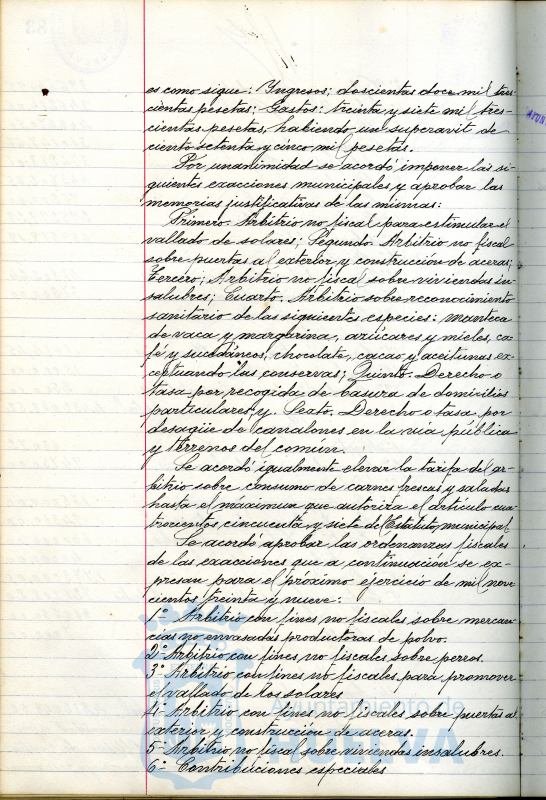 es como sigue: Ingresos; doscientas doce mil tres-
cientas pesetas; Gastos: treinta y siete mil tres-
cientas pesetas, habiendo un superavit de
ciento setenta y cinco mil pesetas.
Por unanimidad se acordó imponer las si-
guientes exacciones municipales y aprobar las
memorias justificativas de las mismas:
Primero. Arbitrio no fiscal para estimular el
vallado de solares; Segundo. Arbitrio no fiscal
sobre puertas al exterior y construcción de aceras;
Tercero; Arbitrio no fiscal sobre viviendas in-
salubres; Cuarto. Arbitrio sobre reconocimiento
sanitario de las siguientes especies: manteca
de vaca y margarina, azúcares y mieles, ca-
fé y sucedáneos, chocolate, cacao y aceitunas ex-
ceptuando las conservas; Quinto. Derecho o
tasa por recogida de basura de domicilios
particulares y. Sexto. Derecho o tasa por
desagüe de canalones en la via pública
y terrenos del común.
Se acordó igualmente elevar la tarifa del ar-
bitrio sobre consumo de carnes frescas y saladas
hasta el máximun que autoriza el artículo cua-
trocientos cincuenta y siete del Estatuto municipal.
Se acordó aprobar las ordenanzas fiscales
de las exacciones que a continuación se ex-
presan para el próximo ejercicio de mil nove-
cientos treinta y nueve:
1º Arbitrio con fines no fiscales sobre mercan-
cias no envasadas productoras de polvo.
2º Arbitrio con fines no fiscales sobre perros.
3º Arbitrio con fines no fiscales para promover
el vallado de los solares
4º Arbitrio con fines no fiscales sobre puertas al
exterior y construcción de aceras.
5º Arbitrio no fiscal sobre viviendas insalubres.
6º Contribuciones especiales
Ayuntamiento de
HUELVA